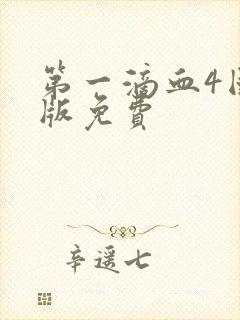 第一滴血4
版免费
辛遥七